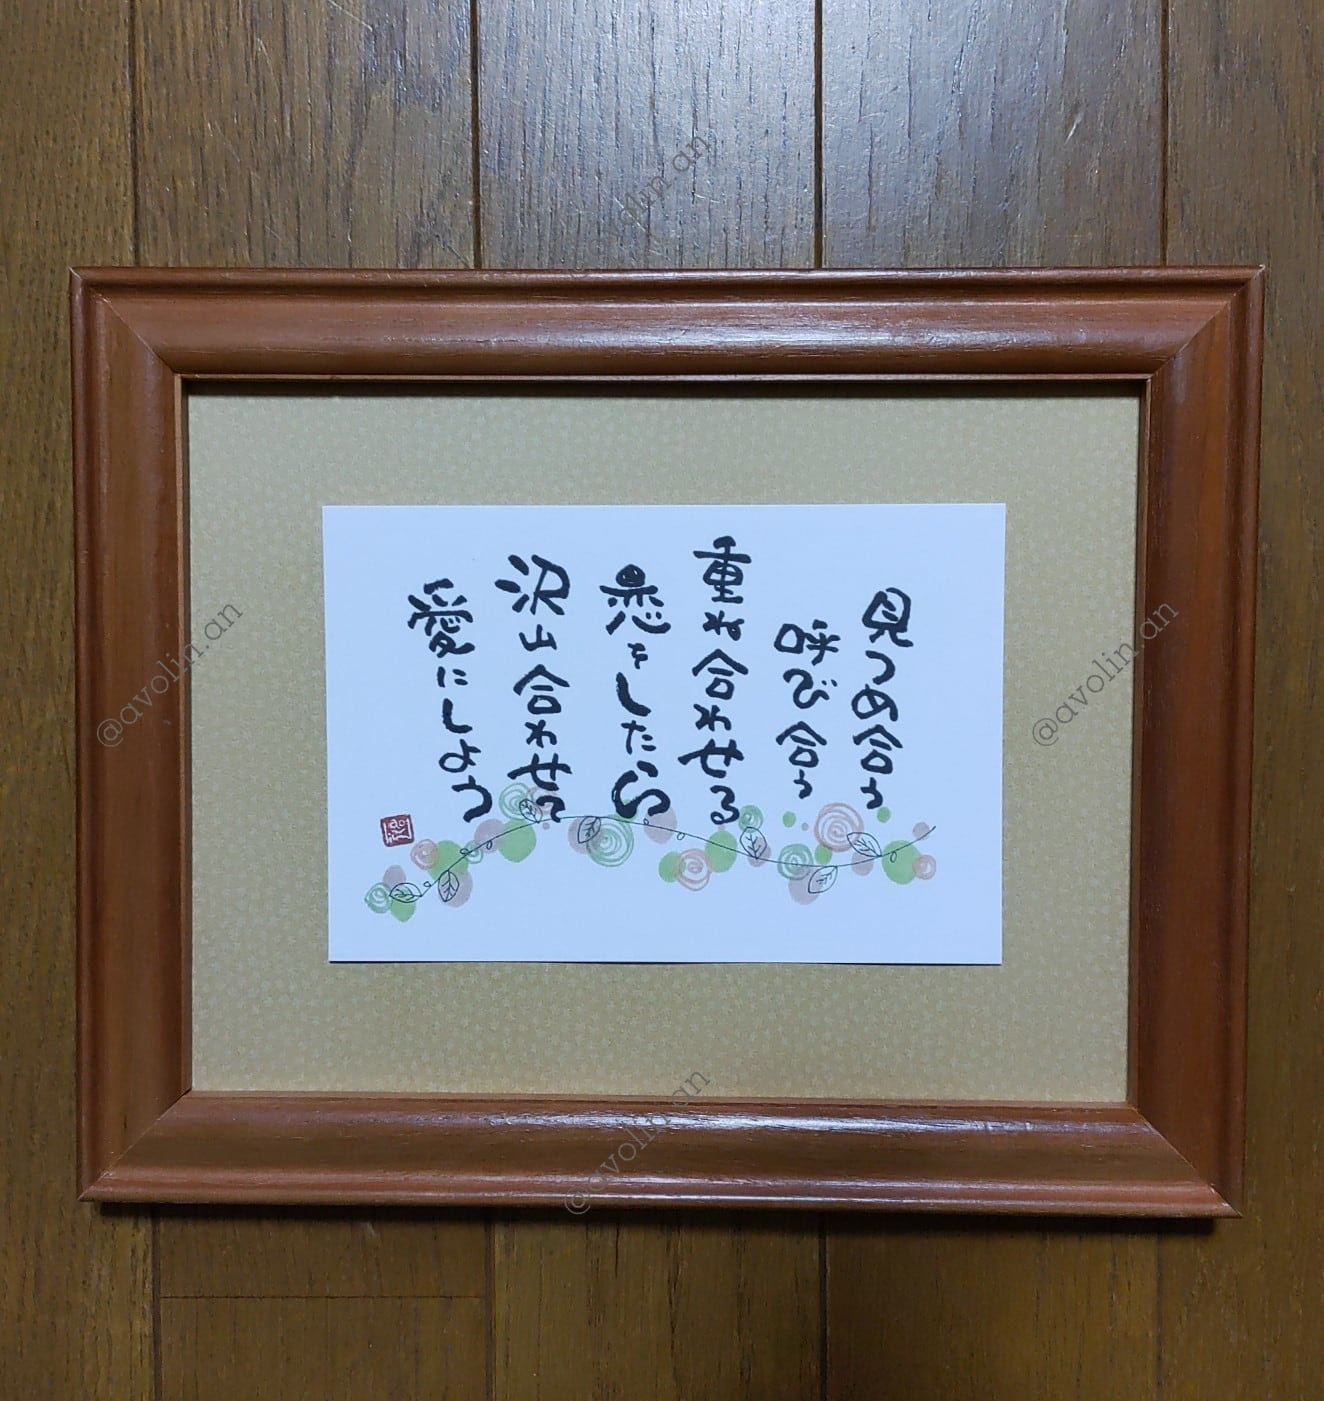 見つめ合う
呼び合う
重ね合わせる
恋をしたら
沢山合わせて
愛にしよう
@avolin.an
@avolin.an
@avolin.an